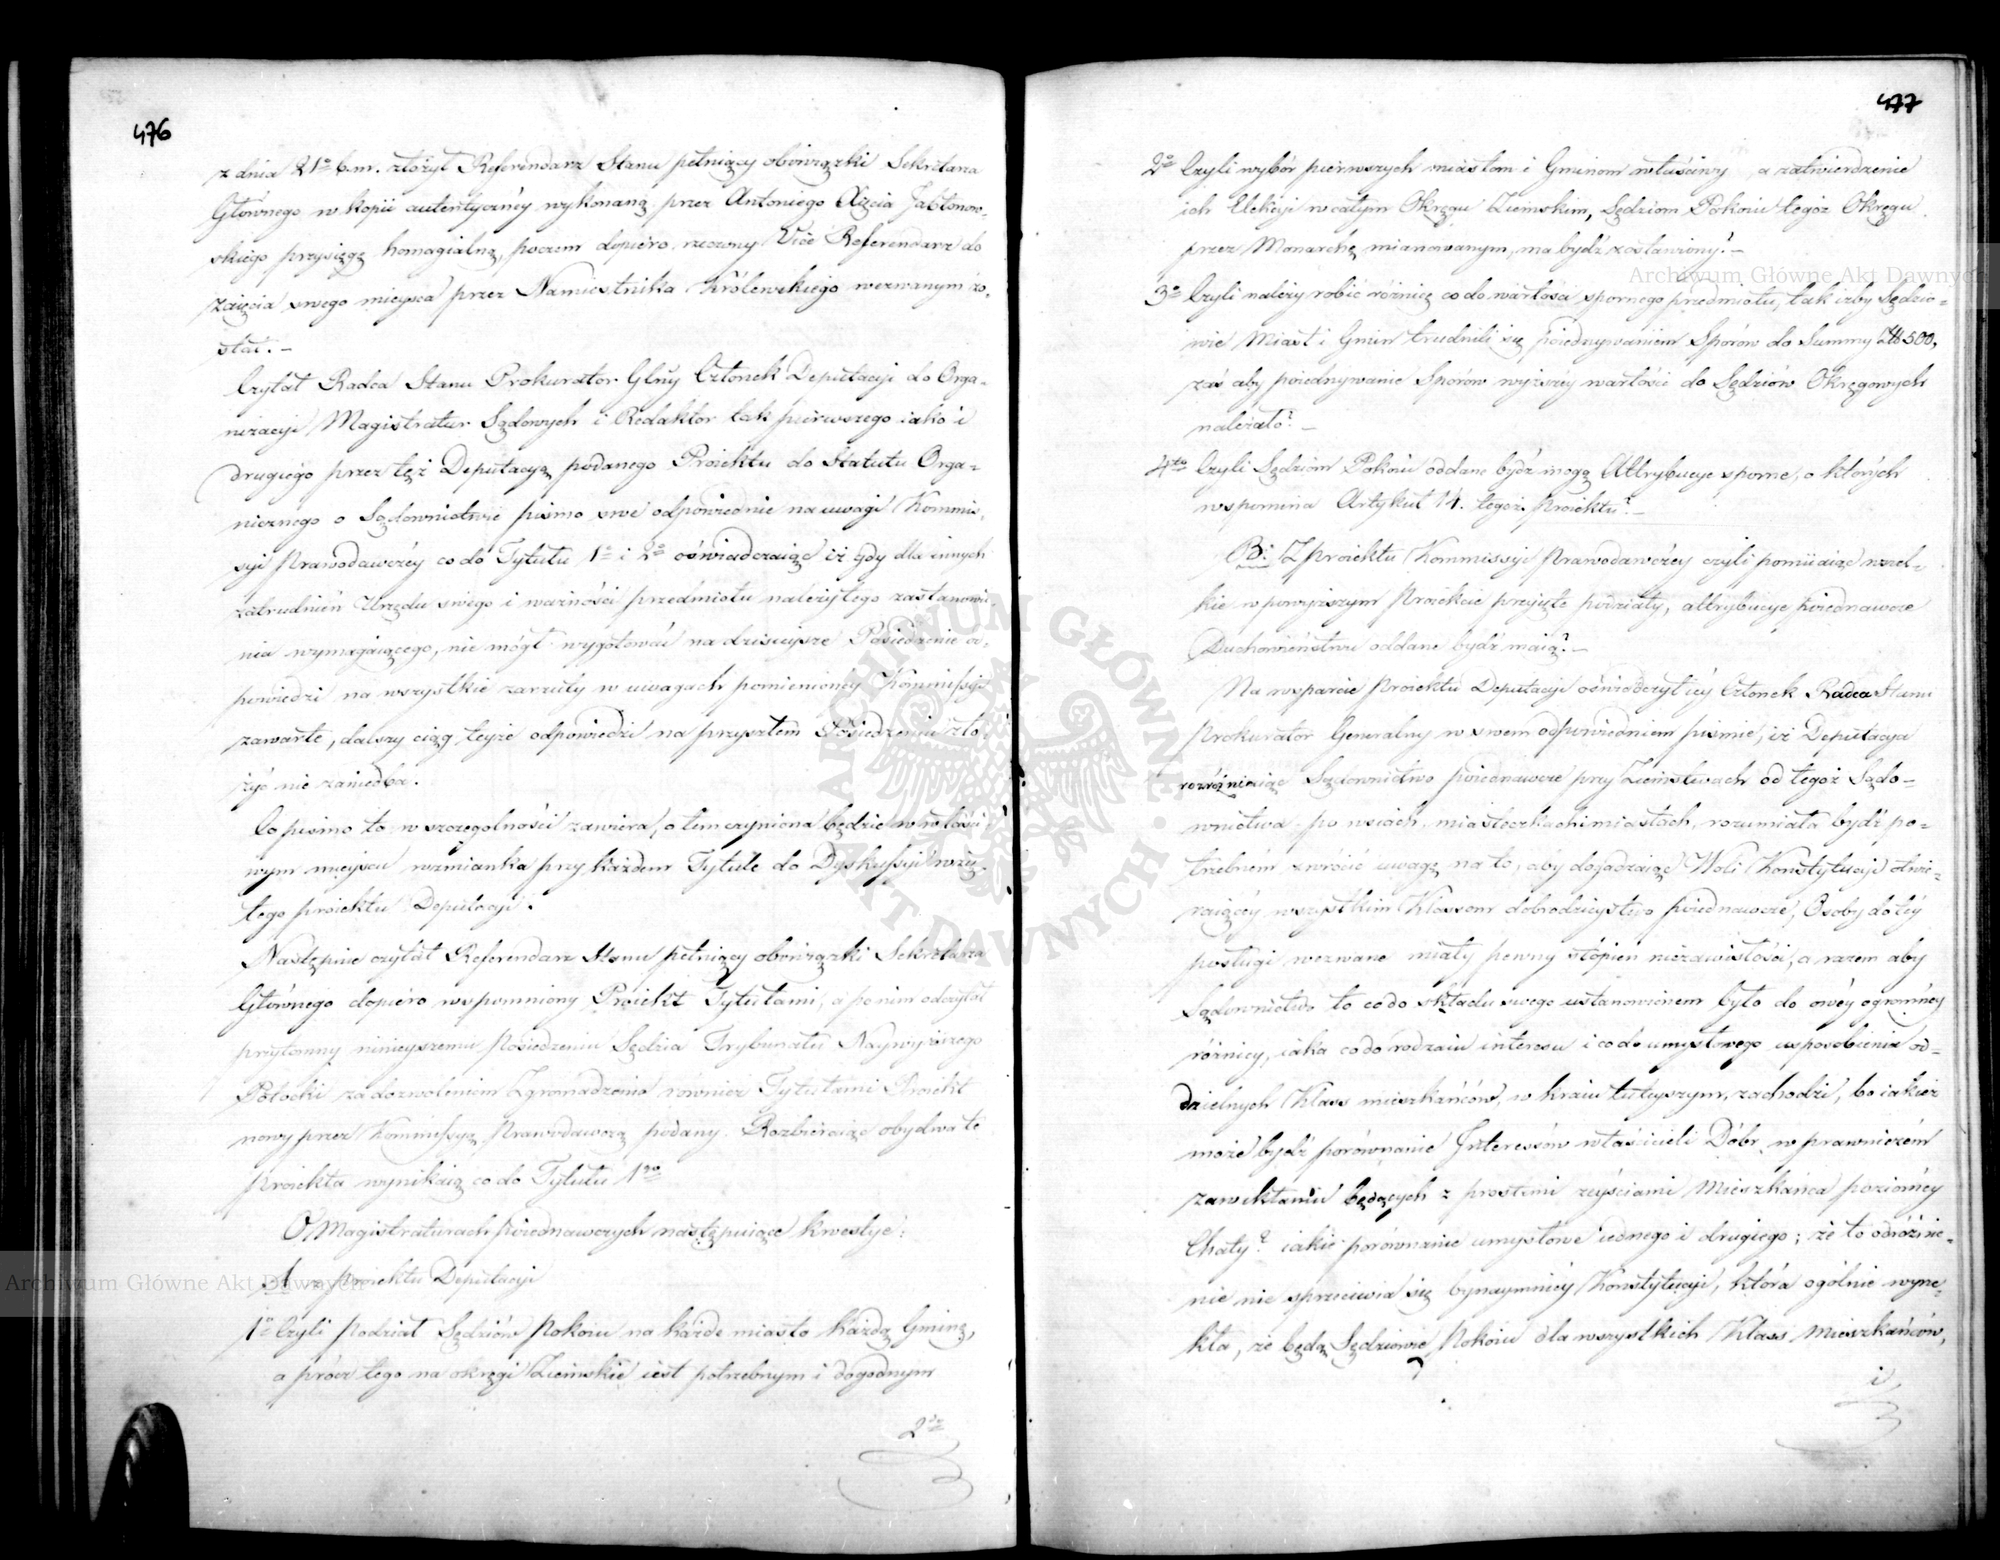 476
z dnia 21º b.m. złożył Referendarz Stanu pełniący obowiązki Sekretarza
Głównego w kopii autentycznéy wykonaną przez Antoniego Xięcia Jabłonow-
skiego przysięgę homagialną, poczem dopiéro rzeczony Vice Referendarz do
zaięcia swego mieysca przez Namiestnika Królewskiego wezwanym zo-
stał. —
Czytał Radca Stanu Prokurator Glny Członek Deputacyi do Orga-
nizacyi Magistratur Sądowych i Redaktor tak pierwszego iako i
drugiego przez tęż Deputacyą podanego Proiektu do Statutu Orga-
nicznego o Sądownictwie pismo swe odpowiednie na uwagi Kommis-
syi Prawodawczéy co do Tytułu 1º i 2º oświadczaiąc iż gdy dla innych
zatrudnień Urzędu swego i ważności przedmiotu należytego zastanowie-
nia wymagaiącego, nie mógł wygotować na dzisieysze Posiedzenie od-
powiedzi na wszystkie zarzuty w uwagach pomienionéy Kommissyi
zawarte, dalszy ciąg teyże odpowiedzi na przyszłem Posiedzeniu zło-
żyć nie zaniedba.
Co pismo to w szczególności zawiera, o tem czyniona będzie w właści-
wym mieyscu wzmianka przy każdem Tytule do Dyskussyi wzię-
tego proiektu Deputacyi.
Następnie czytał Referendarz Stanu pełniący obowiązki Sekretarza
Głównego dopiéro wspomniony Proiekt Tytułami, a po nim odczytał
przytomny ninieyszemu Posiedzeniu Sędzia Trybunału Naywyższego
Potocki za dozwoleniem Zgromadzenia również Tytułami Proiekt
nowy przez Kommissyą Prawodawczą podany. Rozbieraiąc obydwa te
proiekta wynikaią co do Tytułu 1go
O Magistraturach poiednawczych następuiące kwestye:
A z Proiektu Deputacyi
1º Czyli podział Sędziów Pokoiu na każde miasto każdą Gminę,
a prócz tego na okręgi Ziemskie iest potrzebnym i dogodnym
2do
477
2º Czyli wybór pierwszych miastom i Gminom właściwy, a zatwierdzenie
ich Elekcyi w całym Okręgu Ziemskim, Sędziom Pokoiu tegoż Okręgu
przez Monarchę mianowanym, ma bydź zostawiony? —
3º Czyli należy robić różnicę co do wartości spornego przedmiotu, tak iżby Sędzio-
wie Miast i Gmin trudnili się poiednywaniem Sporów do Summy Zł 500,
zaś aby poiednywanie Sporów wyższéy wartości do Sędziów Okręgowych
należało? —
4to Czyli Sędziom Pokoiu oddane bydź mogą Attrybucye sporne, o których
wspomina Artykuł 14. tegoż Proiektu? —
B: Z Proiektu Kommissyi Prawodawczéy czyli pomiiaiąc wszel-
kie w powyższym Proiekcie przyięte podziały, attrybucye poiednawcze
Duchowieństwu oddane bydź maią? —
Na wsparcie Proiektu Deputacyi oświadczył iéy Członek Radca Stanu
Prokurator Generalny w swem odpowiedniem piśmie, iż Deputacya
rozróżniaiąc Sądownictwo poiednawcze przy Ziemstwach od tegoż Sądo-
wnictwa po wsiach, miasteczkach i miastach, rozumiała bydź po-
trzebném zwrócić uwagę na to, aby dogadzaiąc Woli Konstytucyi otwie-
raiącéy wszystkim Klassom dobrodzieystwo poiednawcze, Osoby do téy
posługi wezwane miały pewny stopień niezawisłości, a razem aby
Sądownictwo to co do składu swego ustanowionem było do owéy ogromnéy
różnicy, iaka co do rodzaiu interesu i co do umysłowego usposobienia od-
dzielnych Klass mieszkańców, w kraiu tuteyszym, zachodzi, bo iakież
może bydź porównanie Interessów właścicieli Dóbr w prawniczém
zawikłaniu będących z prostemi zayściami Mieszkańca poziomey
Chaty? iakie porównanie umysłowe iednego i drugiego; że to odróżnie-
nie nie sprzeciwia się bynaymniéy Konstytucyi, która ogólnie wyrze-
kła, że będą Sędziowie Pokoiu dla wszystkich Klass Mieszkańców,
i
Archiwum Główne Akt Dawnych
Archiwum Główne Akt Dawnych
ARCHIWUM GŁÓWNE AKT DAWNYCH